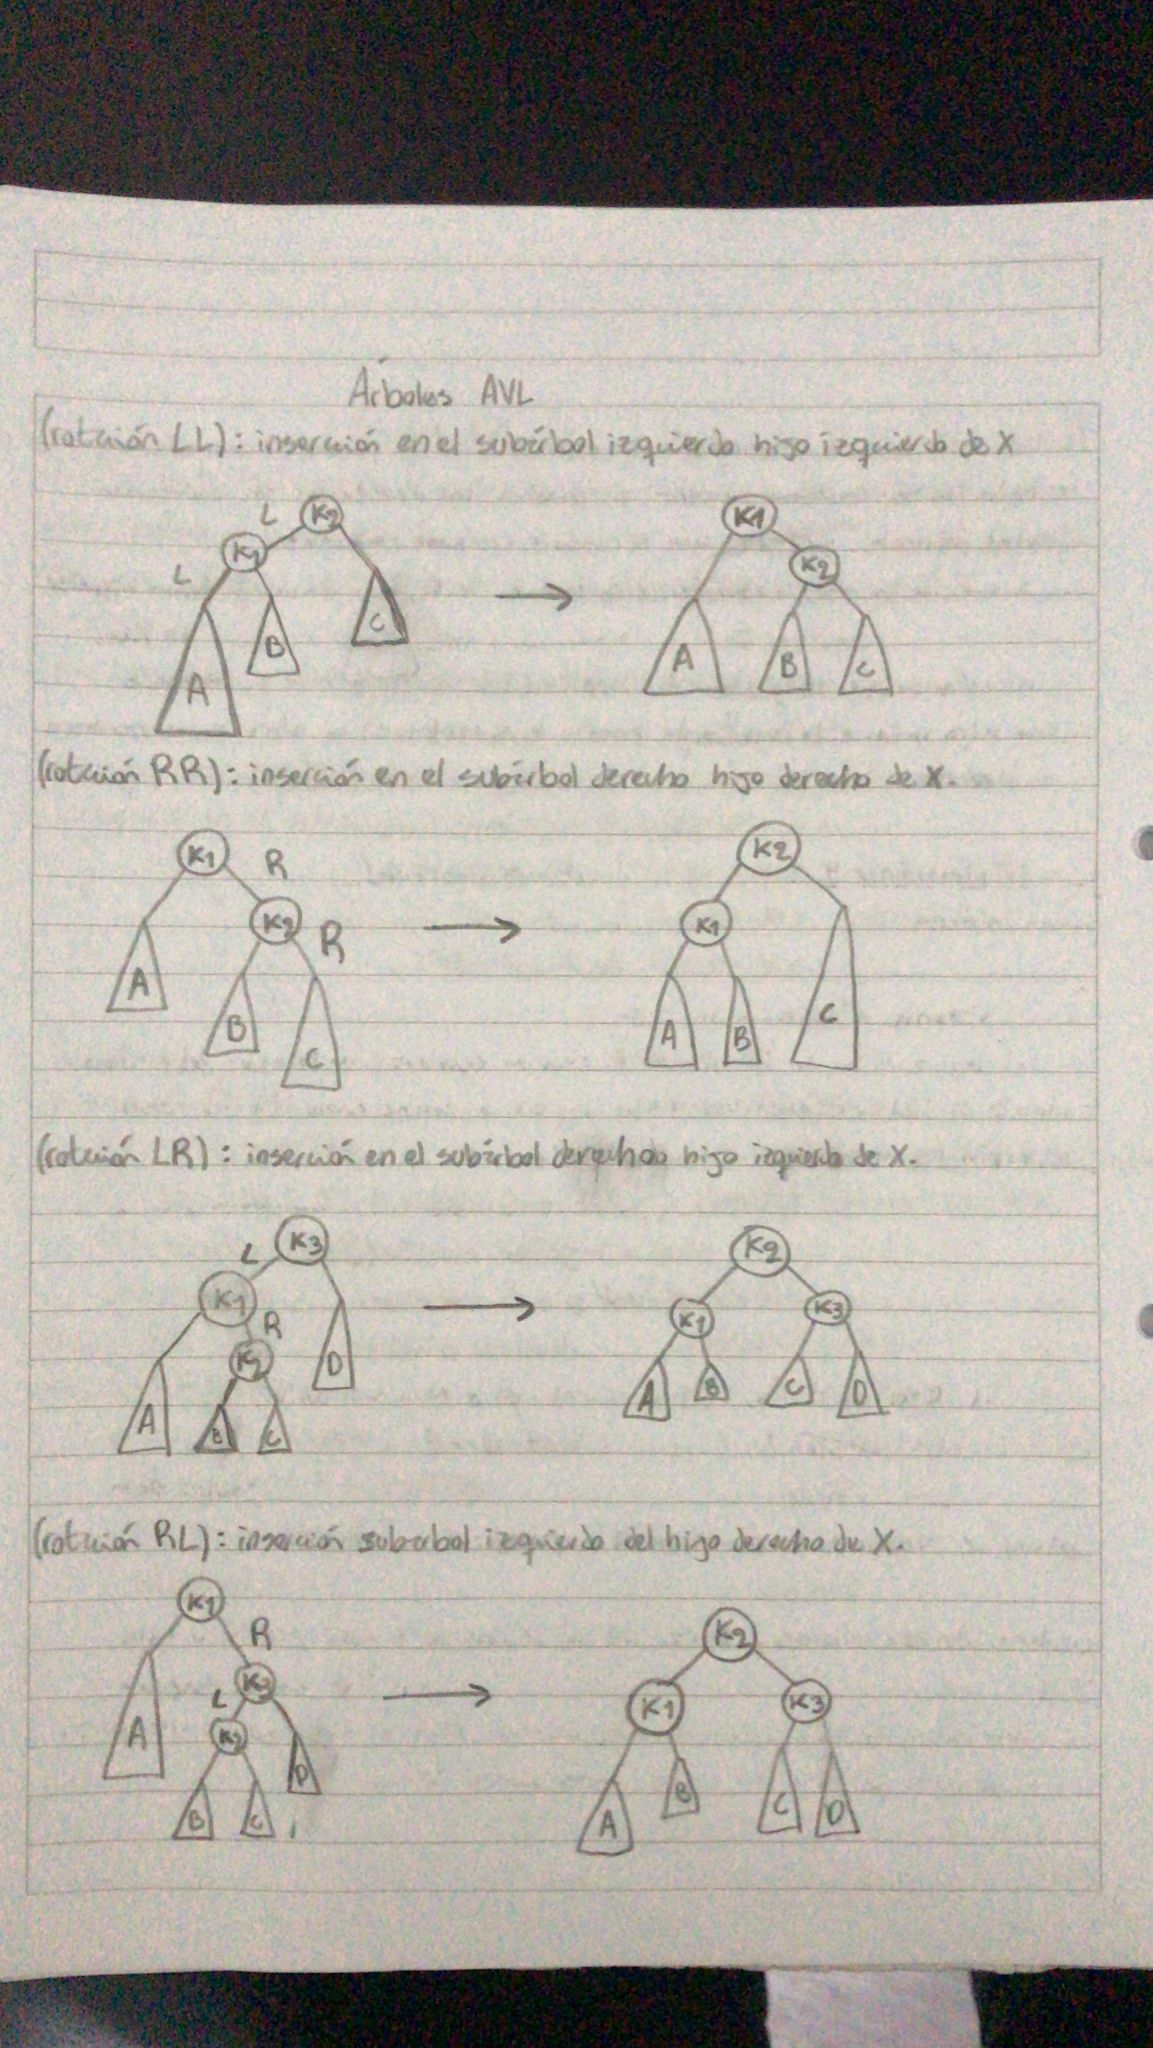 Árboles AVL
(rotación LL): inserción en el subárbol izquierdo hijo izquierdo de X
L K2 K1
L K1 K2
A B C A B C
(rotación RR): inserción en el subárbol derecho hijo derecho de X.
K1 R K2
K2 R K1
A B C A B C
(rotación LR): inserción en el subárbol derecho hijo izquierdo de X.
L K3 K2
K1 R K1 K3
K2 D
A B C A B C D
(rotación RL): inserción subárbol izquierdo del hijo derecho de X.
K1 R K2
L K1 K3
A K2 D
B C A B C D